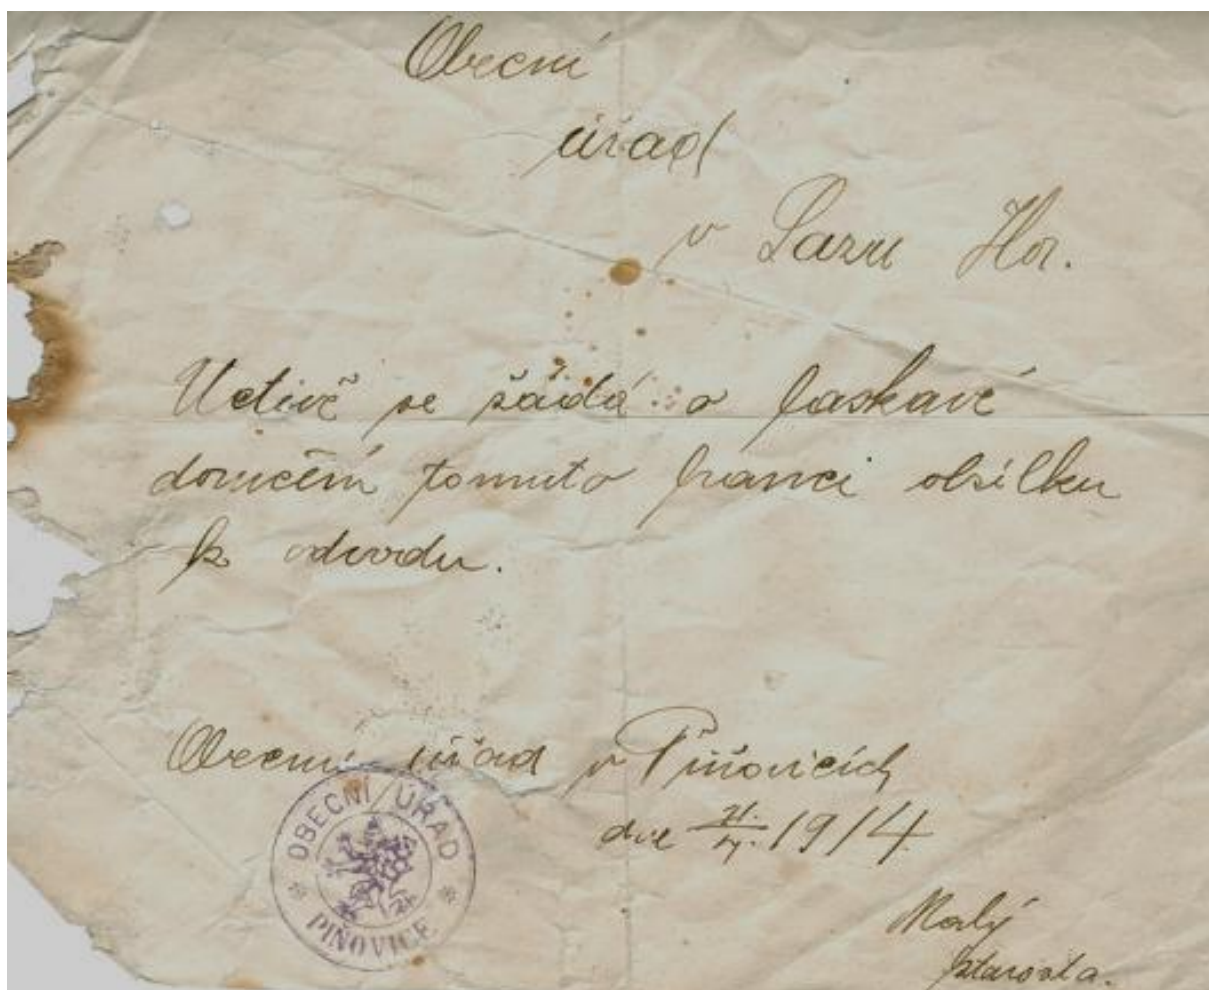 Obecní
úřad
v Lazu Hor.
Uctivě se žádá o laskavé
doručení tomuto branci obsílku
k odvodu.
Obecní úřad v Piňovicích
dne 1914
OBECNÍ ÚŘAD
PIŇOVICE
Malý
starosta.